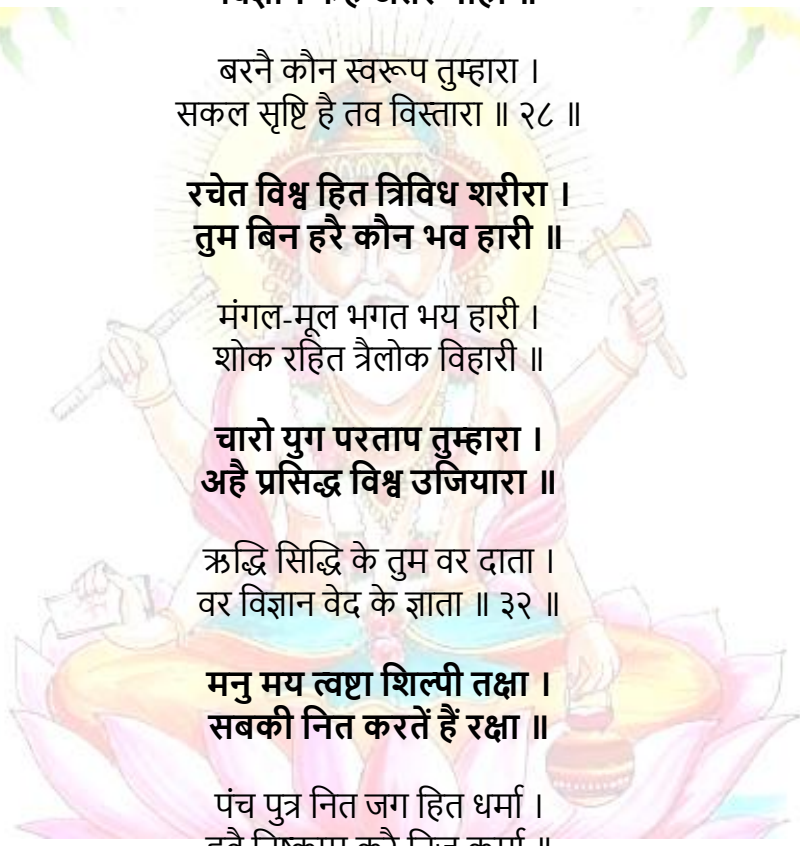 बरनै कौन स्वरूप तुम्हारा ।
सकल सृष्टि है तव विस्तारा ॥ २८ ॥
रचेत विश्व हित त्रिविध शरीरा ।
तुम बिन हरै कौन भव हारी ॥
मंगल-मूल भगत भय हारी ।
शोक रहित त्रैलोक विहारी ॥
चारो युग परताप तुम्हारा ।
अहै प्रसिद्ध विश्व उजियारा ॥
ऋद्धि सिद्धि के तुम वर दाता ।
वर विज्ञान वेद के ज्ञाता ॥ ३२ ॥
मनु मय त्वष्टा शिल्पी तक्षा ।
सबकी नित करतें हैं रक्षा ॥
पंच पुत्र नित जग हित धर्मा ।